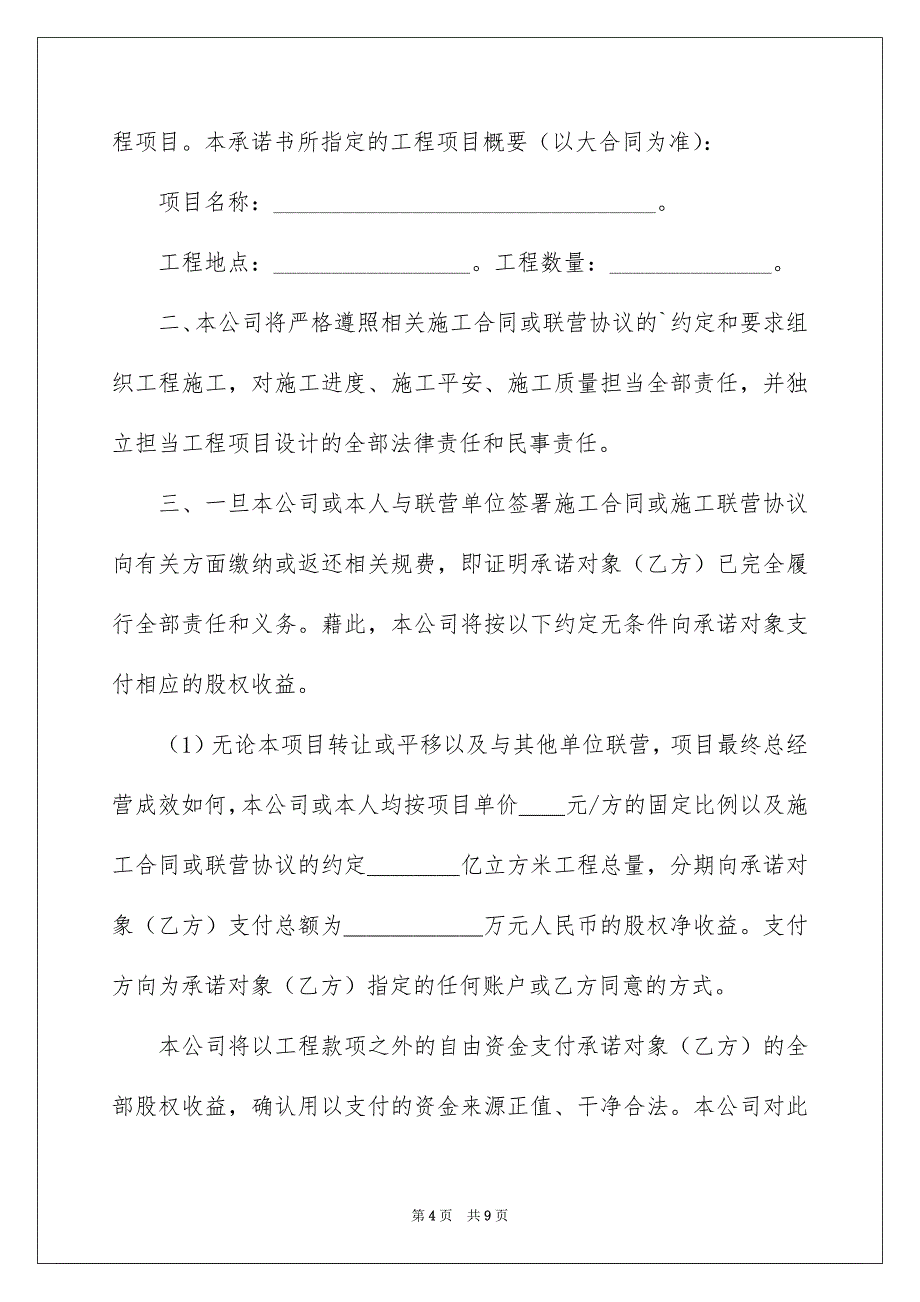 程项目。本承诺书所指定的工程项目概要（以大合同为准）：
项目名称：_________________________________。
工程地点：_________________。工程数量：______________。
二、本公司将严格遵照相关施工合同或联营协议的`约定和要求组
织工程施工，对施工进度、施工平安、施工质量担当全部责任，并独
立担当工程项目设计的全部法律责任和民事责任。
三、一旦本公司或本人与联营单位签署施工合同或施工联营协议
向有关方面缴纳或返还相关规费，即证明承诺对象（乙方）已完全履
行全部责任和义务。藉此，本公司将按以下约定无条件向承诺对象支
付相应的股权收益。
（1）无论本项目转让或平移以及与其他单位联营，项目最终总经
营成效如何，本公司或本人均按项目单价____元/方的固定比例以及施
工合同或联营协议的约定________亿立方米工程总量，分期向承诺对
象（乙方）支付总额为____________万元人民币的股权净收益。支付
方向为承诺对象（乙方）指定的任何账户或乙方同意的方式。
本公司将以工程款项之外的自由资金支付承诺对象（乙方）的全
部股权收益，确认用以支付的资金来源正值、干净合法。本公司对此
第4页 共9页